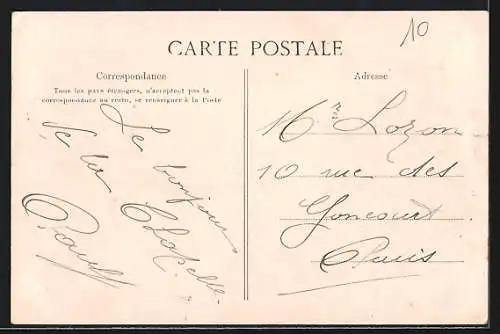 10
CARTE POSTALE
Correspondance
Tous les pays étrangers, n'acceptent pas la
correspondance au recto, se renseigner à la Poste
Le bonjour
de La
Chapelle
Paul
Adresse
Mr Lozon
10 rue des
Goncourt
Paris